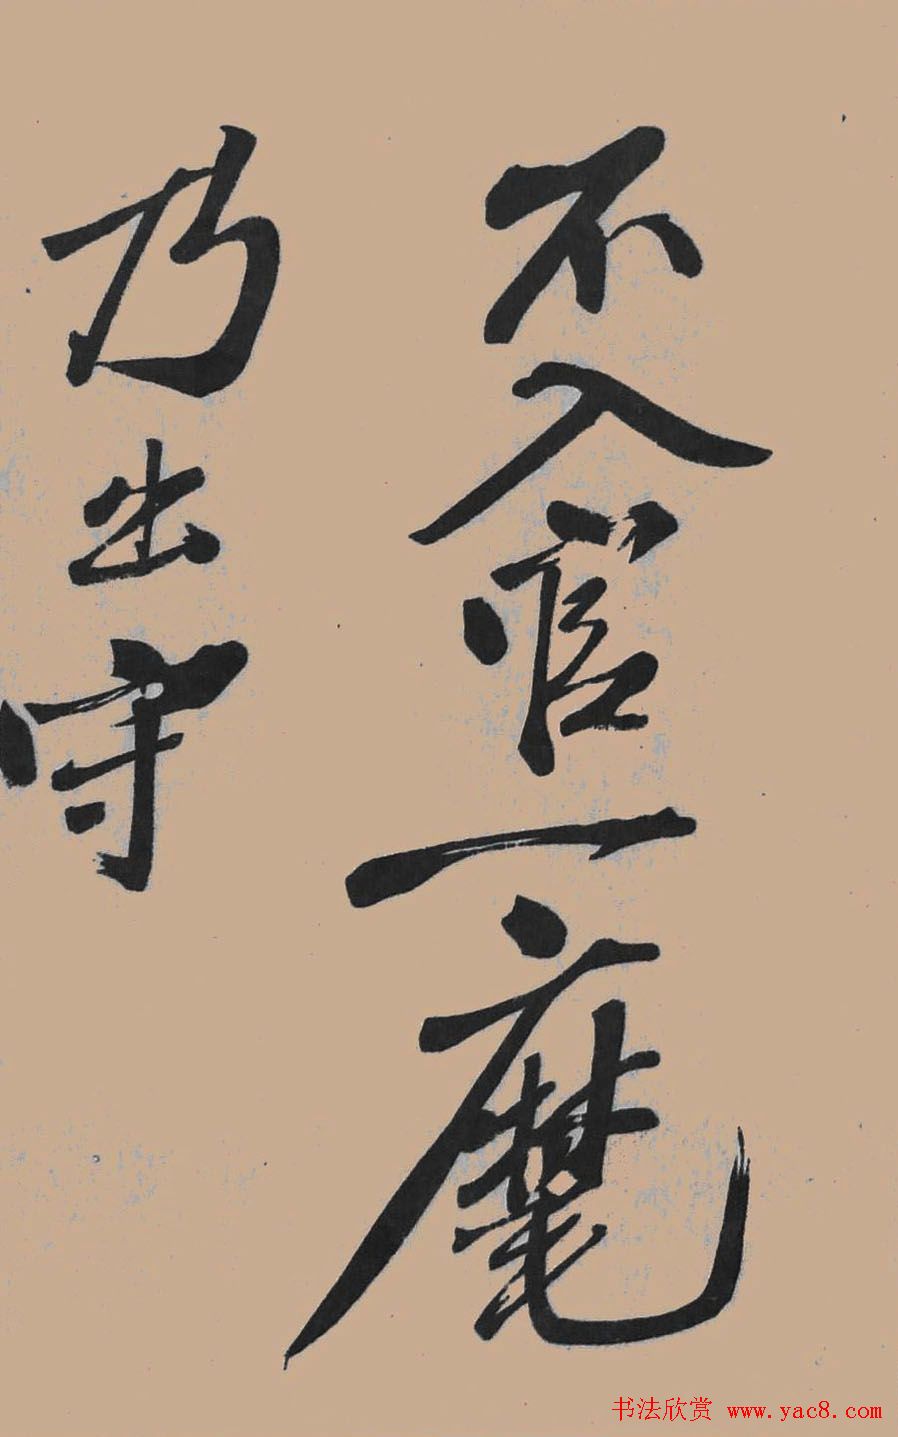 不入官一麾
乃出守
书法欣赏 www.yac8.com